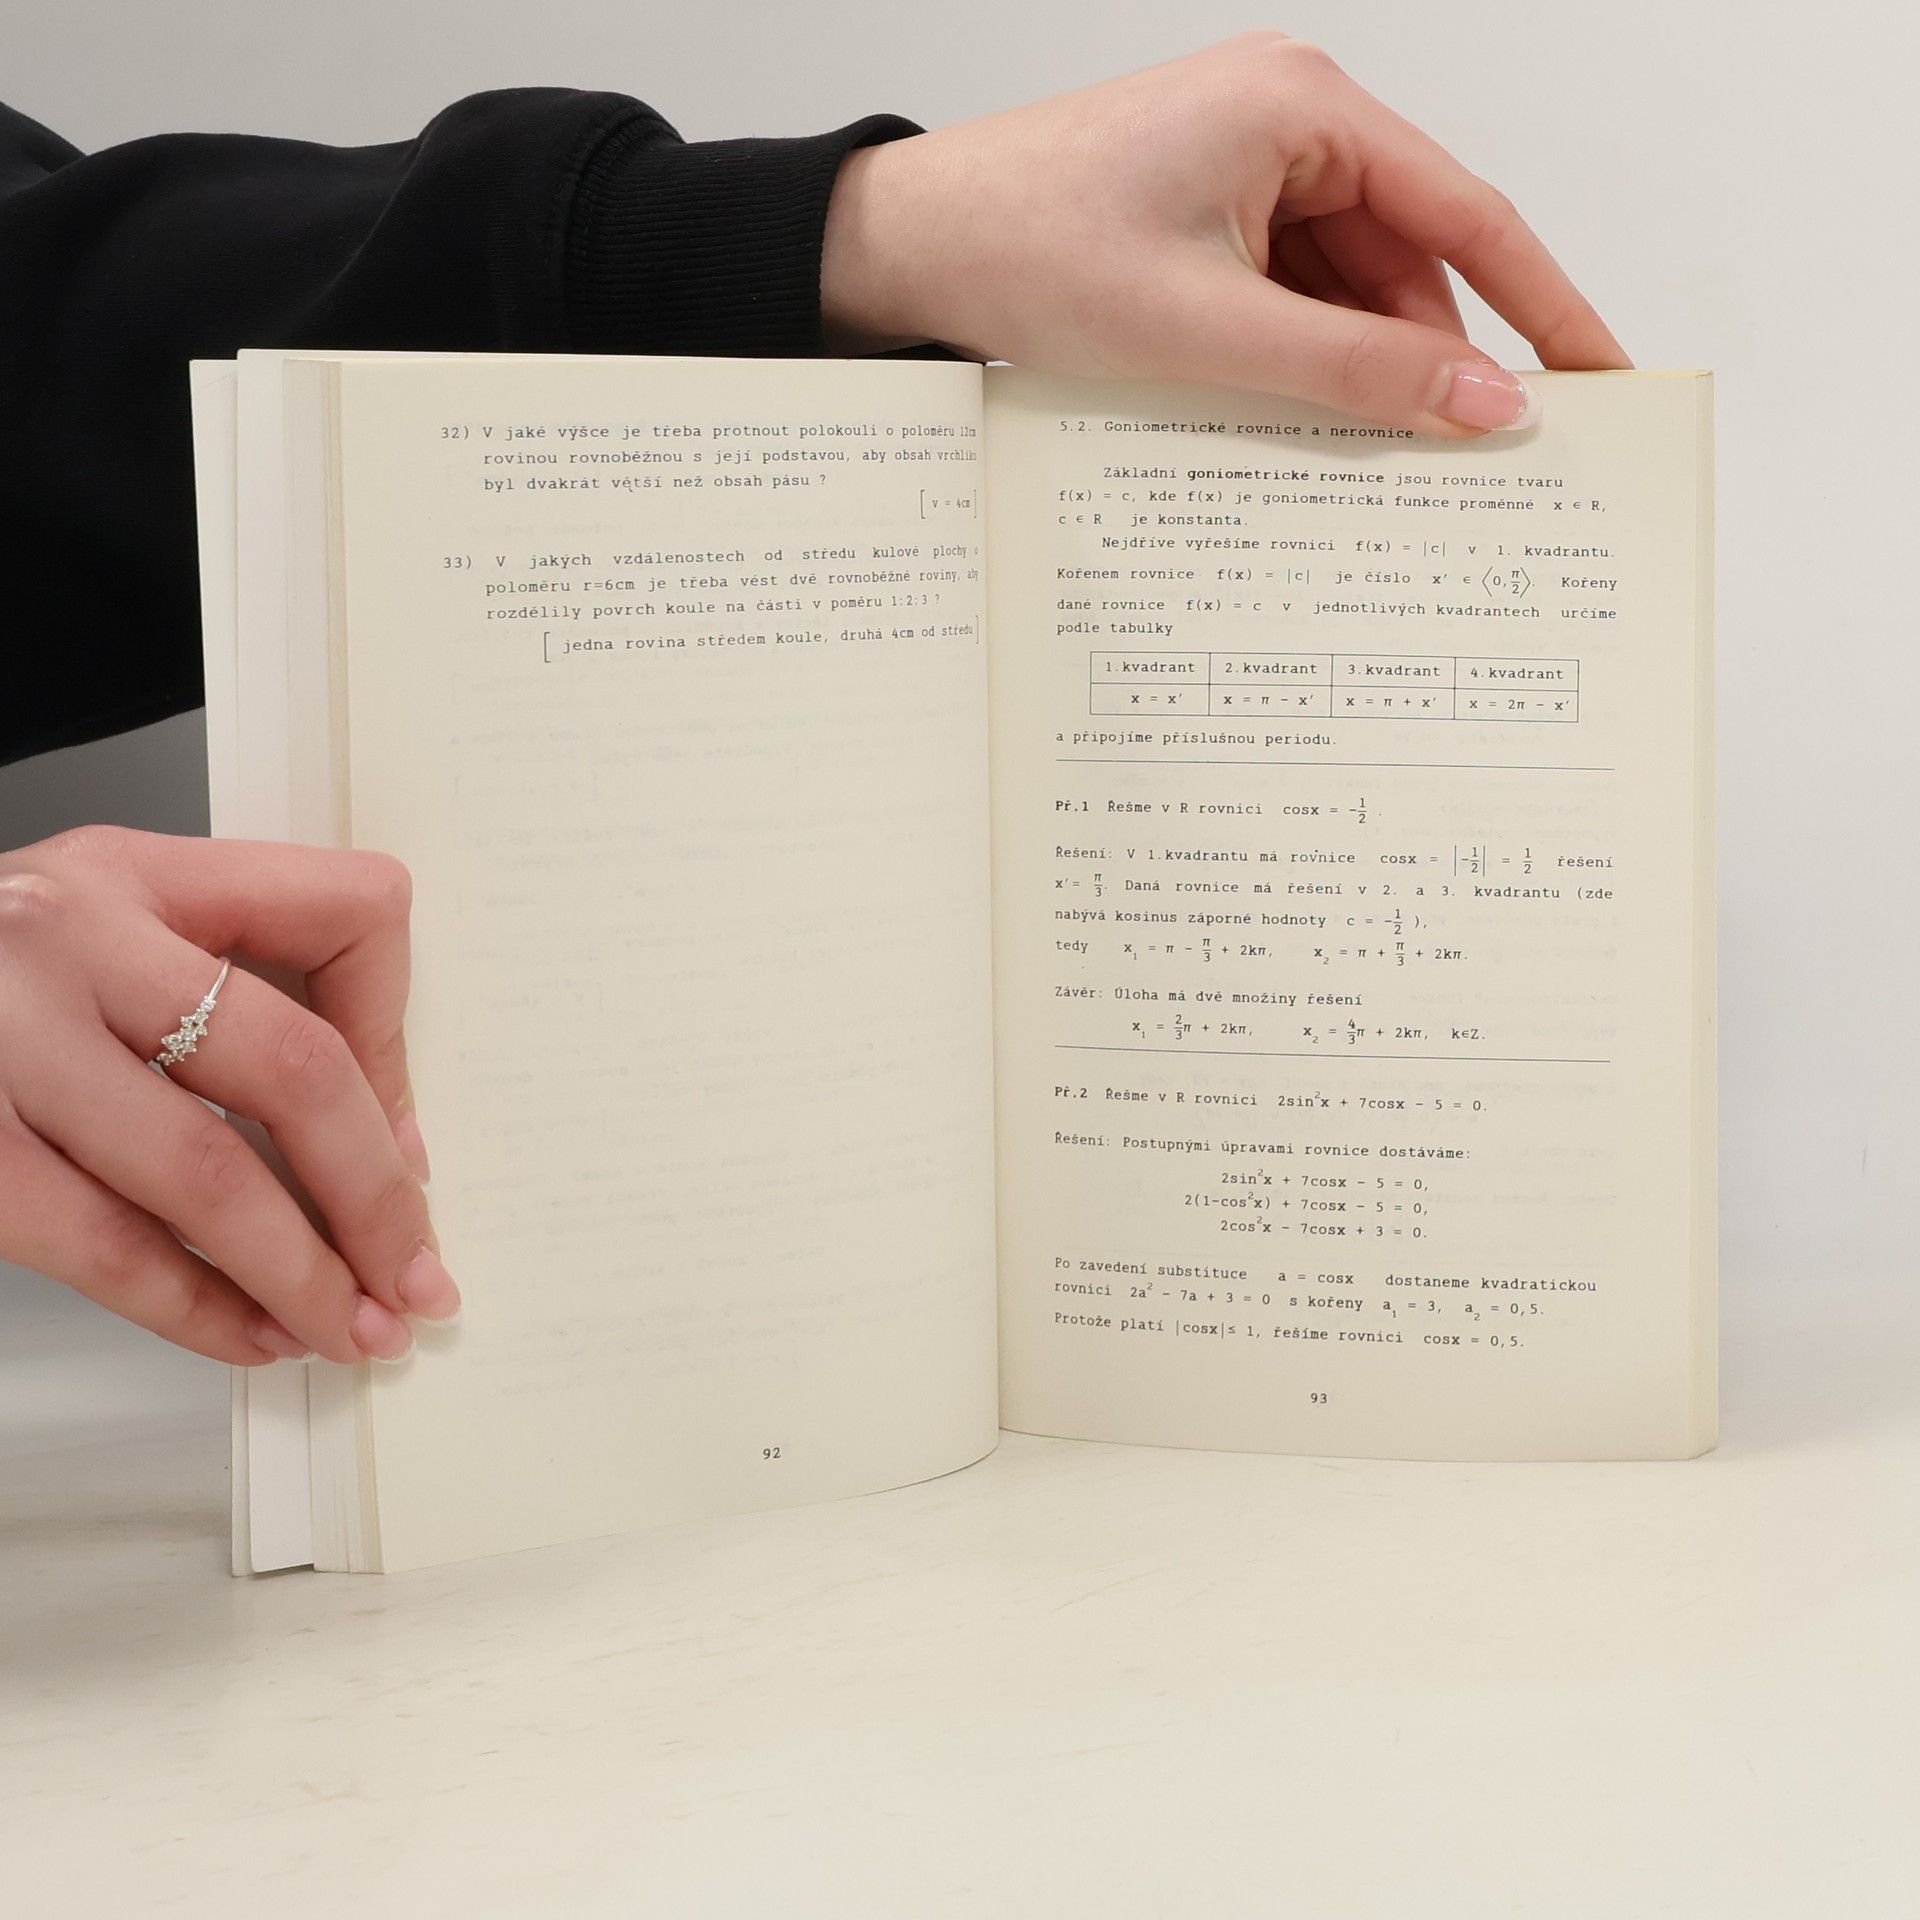 32) V jaké výšce je třeba protnout polokouli o poloměru 12cm
rovinou rovnoběžnou s její podstavou, aby obsah vrchlíku
byl dvakrát větší než obsah pásu ?
[ v = 4cm ]
33) V jakých vzdálenostech od středu kulové plochy o
poloměru r=6cm je třeba vést dvě rovnoběžné roviny, aby
rozdělily povrch koule na části v poměru 1:2:3 ?
[ jedna rovina středem koule, druhá 4cm od středu ]
92
5.2. Goniometrické rovnice a nerovnice
Základní goniometrické rovnice jsou rovnice tvaru
f(x) = c, kde f(x) je goniometrická funkce proměnné x ∈ R,
c ∈ R je konstanta.
Nejdříve vyřešíme rovnici f(x) = |c| v 1. kvadrantu.
Kořenem rovnice f(x) = |c| je číslo x' ∈ ⟨0, π/2⟩. Kořeny
dané rovnice f(x) = c v jednotlivých kvadrantech určíme
podle tabulky
1.kvadrant 2.kvadrant 3.kvadrant 4.kvadrant
x = x' x = π - x' x = π + x' x = 2π - x'
a připojíme příslušnou periodu.
Př.1 Řešme v R rovnici cosx = -1/2 .
Řešení: V 1.kvadrantu má rovnice cosx = |-1/2| = 1/2 řešení
x'= π/3. Daná rovnice má řešení v 2. a 3. kvadrantu (zde
nabývá kosinus záporné hodnoty c = -1/2 ),
tedy x₁ = π - π/3 + 2kπ, x₂ = π + π/3 + 2kπ.
Závěr: Úloha má dvě množiny řešení
x₁ = 2/3π + 2kπ, x₂ = 4/3π + 2kπ, k∈Z.
Př.2 Řešme v R rovnici 2sin²x + 7cosx - 5 = 0.
Řešení: Postupnými úpravami rovnice dostáváme:
2sin²x + 7cosx - 5 = 0,
2(1-cos²x) + 7cosx - 5 = 0,
2cos²x - 7cosx + 3 = 0.
Po zavedení substituce a = cosx dostaneme kvadratickou
rovnici 2a² - 7a + 3 = 0 s kořeny a₁ = 3, a₂ = 0,5.
Protože platí |cosx|≤ 1, řešíme rovnici cosx = 0,5.
93